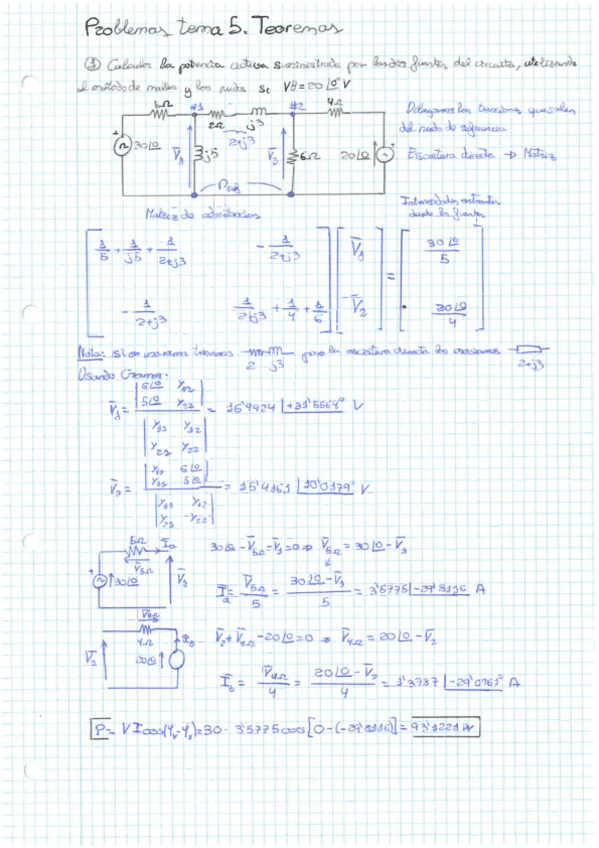 Problemas tema 5. Teoremas
① Calcular la potencia activa suministrada por las dos fuentes del circuito, utilizando
el método de mallas y los nudos si VB=20∠0° V
5Ω #1 2Ω j3 #2 4Ω
2+j3
30∠0 V̅1 j5 V̅2 6Ω 20∠0
Dibujamos las tensiones que salen
del nudo de referencia
Escritura directa → Matriz
Matriz de admitancias
Intensidades entrantes
desde las fuentes
1/5 + 1/j5 + 1/2+j3 - 1/2+j3 V̅1 = 30∠0/5
- 1/2+j3 1/2+j3 + 1/4 + 1/6 V̅2 30∠0/4
Nota: si en una rama tenemos 2 j3 para la escritura directa las 2+j3
Usando Cramer.
V̅1 = |6∠0 Y12 5∠0 Y22| / |Y11 Y12 Y21 Y22| = 15'9924 ∠+31'5664° V
V̅2 = |Y11 6∠0 Y21 5∠0| / |Y11 Y12 Y21 Y22| = 15'4161 ∠10'0179° V
5Ω I̅a V̅5Ω 30∠0 V̅1
30∠0 - V̅5Ω - V̅1 = 0 ⇒ V̅5Ω = 30∠0 - V̅1
I̅a = V̅5Ω/5 = 30∠0 - V̅1/5 = 3'5775 ∠-29'8116 A
V̅4Ω 4Ω I̅b V̅2 20∠0
V̅2 + V̅4Ω - 20∠0 = 0 ⇒ V̅4Ω = 20∠0 - V̅2
I̅b = V̅4Ω/4 = 20∠0 - V̅2/4 = 1'3787 ∠-29'0761° A
P = V I cos(φv-φI) = 30 · 3'5775 cos[0-(-29'8116)] = 93'1221 W